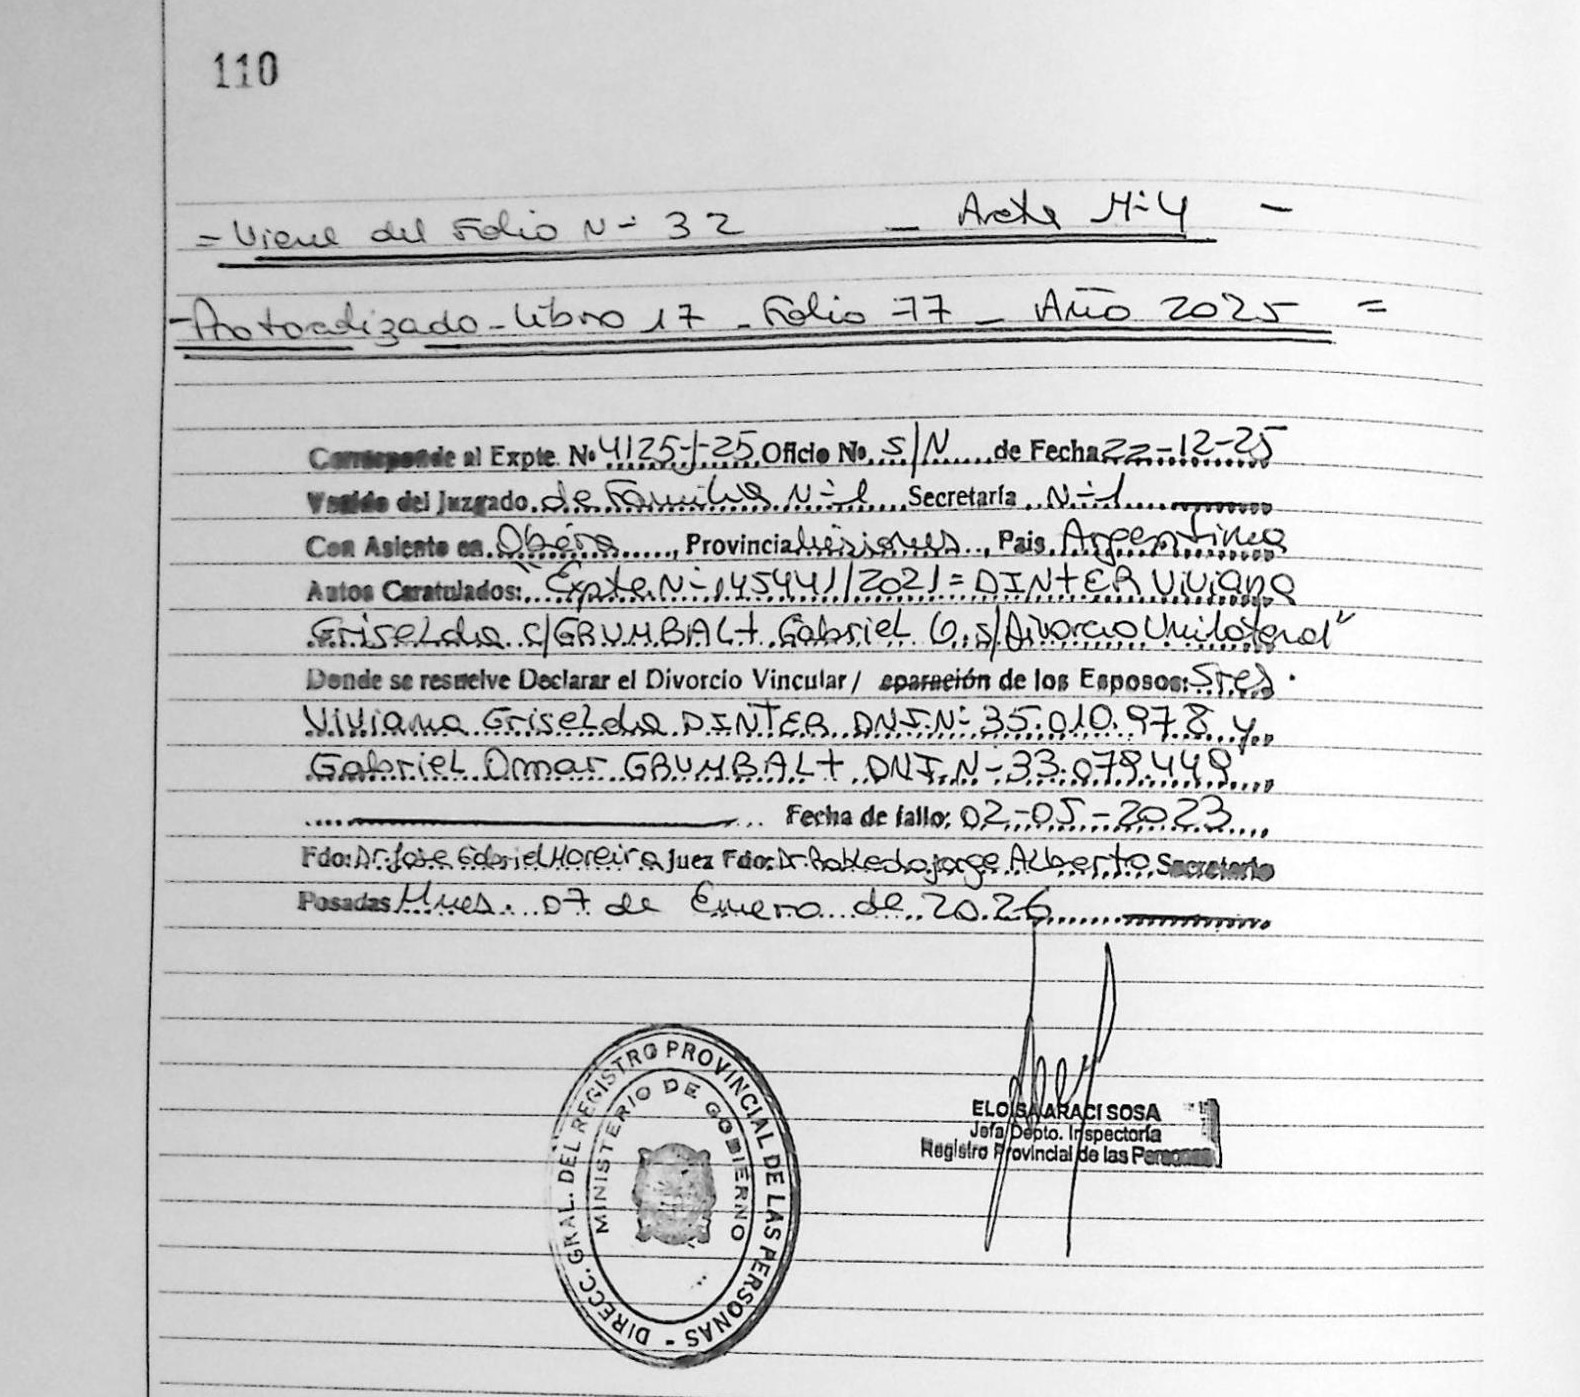 110
= Viene del Folio N= 32 — Acta N=4 —
- Protocolizado - Libro 17 - Folio 77 - Año 2025 =
Corresponde al Expte. Nº 4125-J-25 Oficio Nº S/N de Fecha 22-12-25
Venido del Juzgado de Familia N=1 Secretaría N=1
Con Asiento en Oberá, Provincia Misiones, Pais Argentina
Autos Caratulados: "Expte. N= 145441/2021 = DINTER Viviana
Griselda c/ GRUMBALT Gabriel O. s/ Divorcio Unilateral"
Donde se resuelve Declarar el Divorcio Vincular / eparación de los Esposos: Sres.
Viviana Griselda DINTER DNI. N= 35.010.978 y
Gabriel Omar GRUMBALT DNI. N=
Fecha de fallo: 02-05-2023
Fdo: Dr. Jose Gabriel Moreira Juez Fdo: Dr. Robledo Jorge Alberto Secretario
Posadas Mnes. 07 de Enero de 2026
DIRECC. GRAL. DEL REGISTRO PROVINCIAL DE LAS PERSONAS -
MINISTERIO DE GOBIERNO
ELOISA ARACI SOSA
Jefa Depto. Inspectoría
Registro Provincial de las Personas